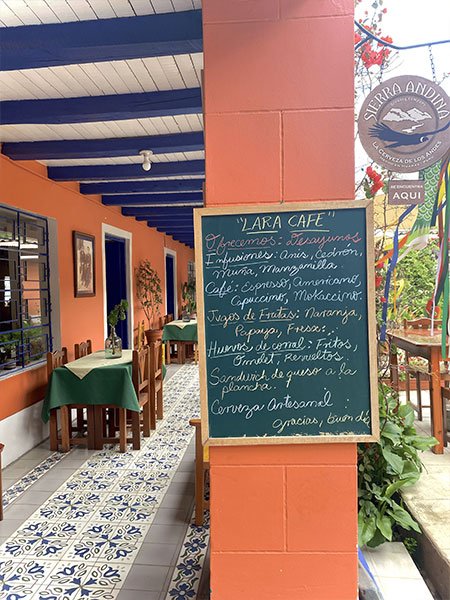 "LARA CAFE"
Ofrecemos: Desayunos
Infusiones: Anis, Cedrón,
Muña, Manzanilla
Café: Espresso, Americano,
Capuccino, Mokaccino.
Jugos de Frutas: Naranja,
Papaya, Fresa.
Huevos de corral: Fritos,
Omelet, Revueltos.
Sandwich de queso a la
plancha.
Cerveza Artesanal
Gracias, buen día
SIERRA ANDINA
LA CERVEZA DE LOS ANDES
ENCUENTRA
AQUÍ